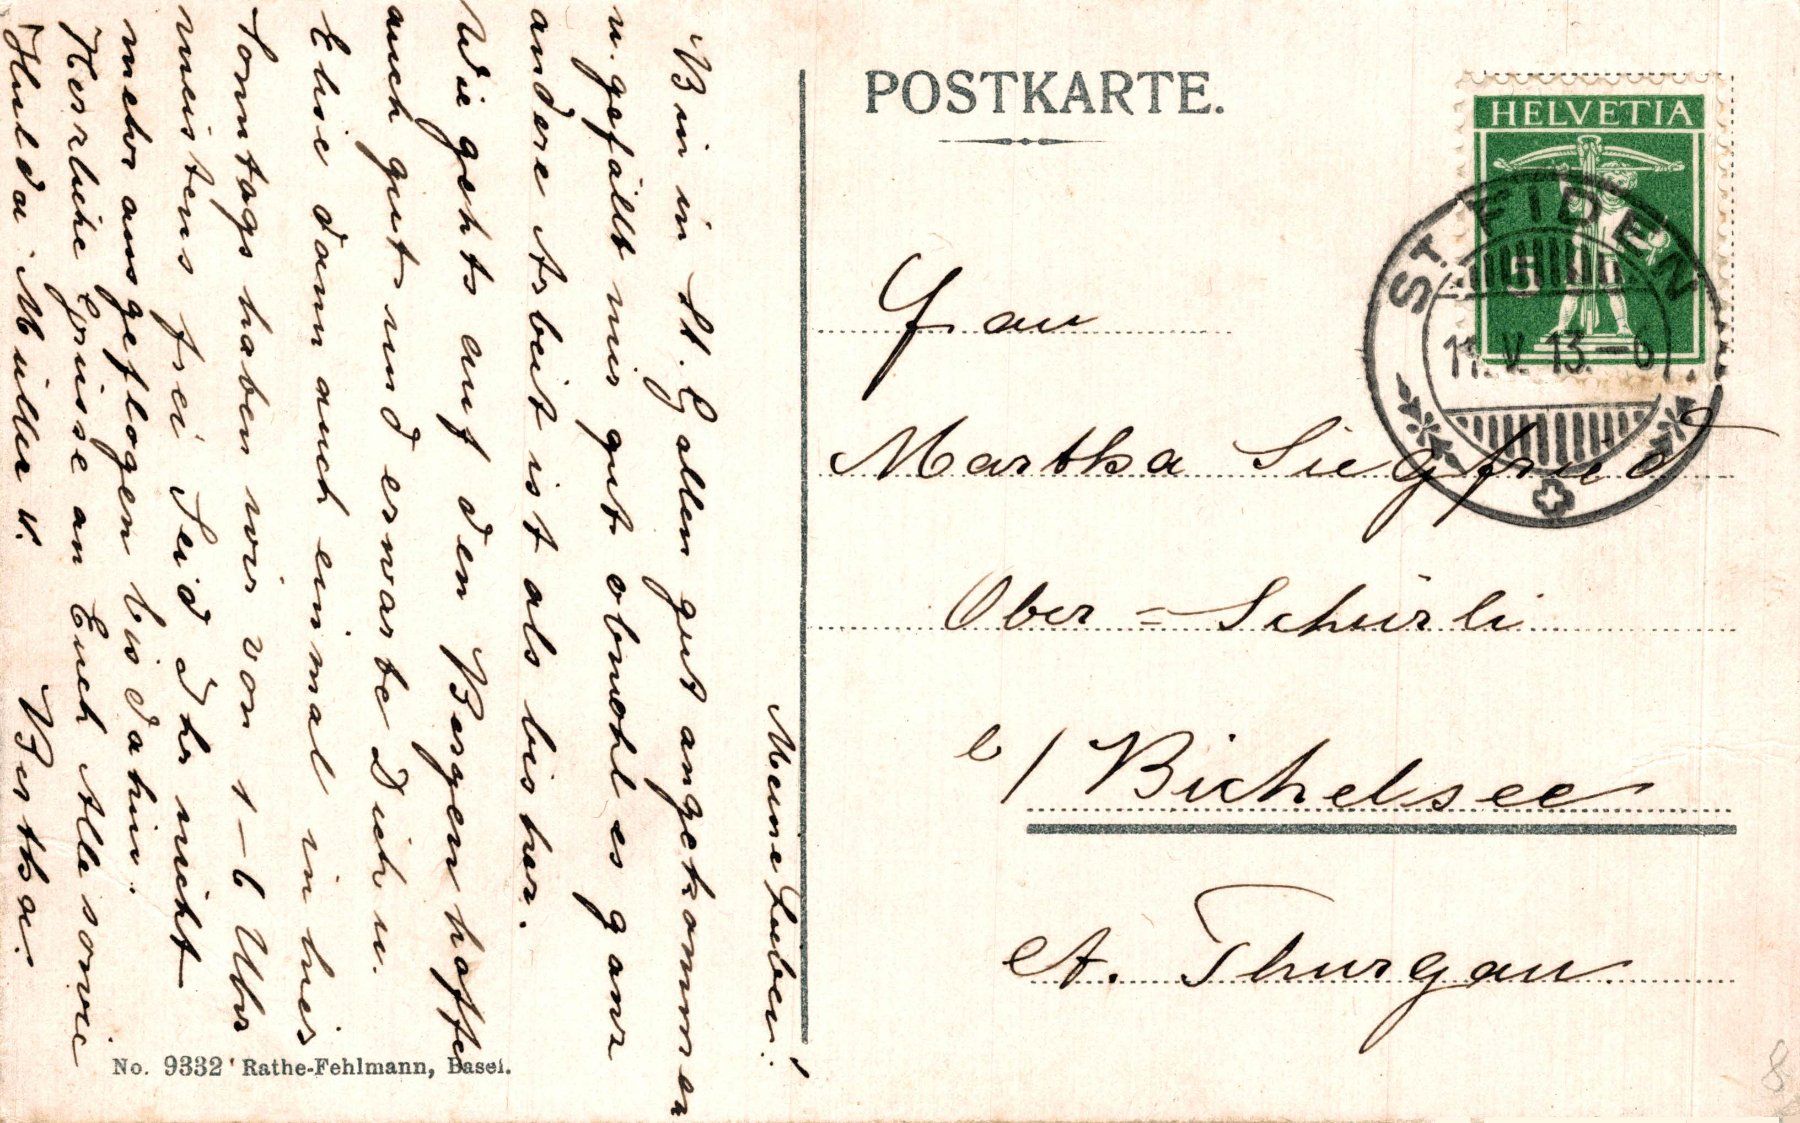 POSTKARTE.
HELVETIA
ST. FIDEN
11. V. 13.–6
Frau
Martha Siegfried
Ober=Schürli
b/ Bichelsee
Kt. Thurgau.
Meine Lieben!
Bin in St. Gallen gut angekommen
u. gefällt mir gut obwohl es ganz
andere Arbeit ist als bisher.
Wie gehts auf den Bergen hoffe
auch gut und erwarte Dich u.
Elise dann auch einmal in hier
Sonntags haben wir von 1–6 Uhr
meistens frei Seid Ihr nicht
mehr ausgeflogen bis dahin.
Herzliche Grüsse an Euch Alle sowie
Hulda Müller v. Bertha.
No. 9332 Rathe-Fehlmann, Basel.
8